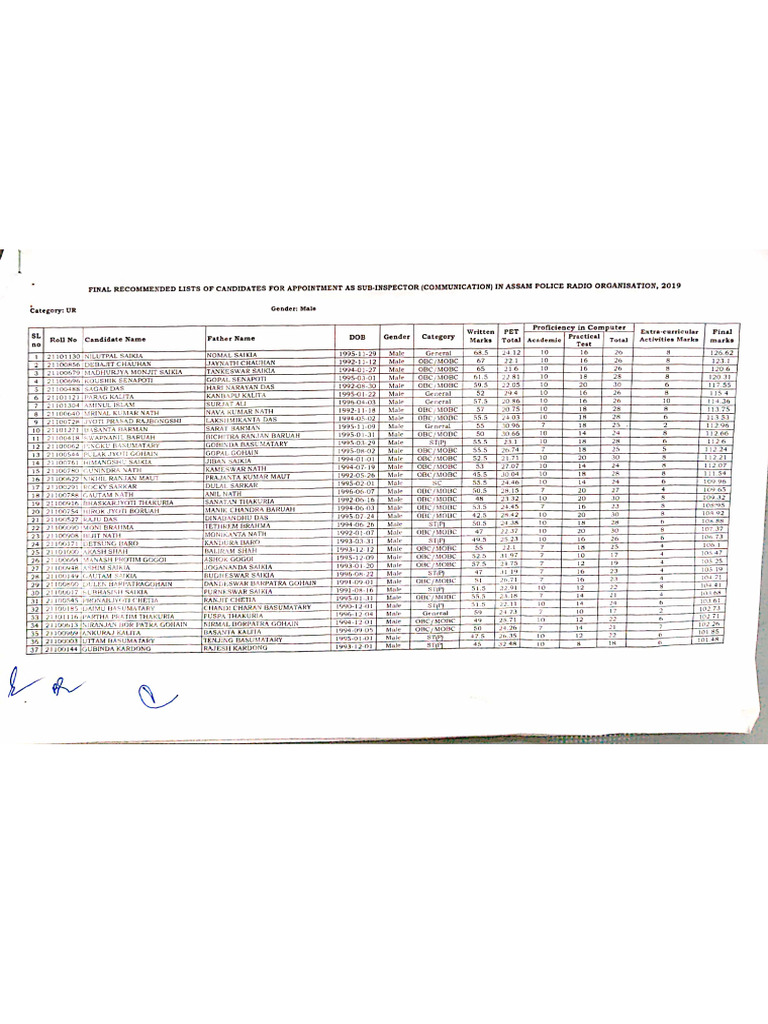 FINAL RECOMMENDED LISTS OF CANDIDATES FOR APPOINTMENT AS SUB-INSPECTOR (COMMUNICATION) IN ASSAM POLICE RADIO ORGANISATION, 2019
Category: UR Gender: Male
SL no Roll No Candidate Name Father Name DOB Gender Category Written Marks PET Total Proficiency in Computer Academic Practical Test Total Extra-curricular Activities Marks Final marks
1 21101130 NILUTPAL SAIKIA NOMAL SAIKIA 1995-11-29 Male General 68.5 24.12 10 16 26 8 126.62
2 21100856 DEBAJIT CHAUHAN JAYNATH CHAUHAN 1992-11-12 Male OBC/MOBC 67 22.1 10 16 26 8 123.1
3 21100679 MADHURJYA MONJIT SAIKIA TANKESWAR SAIKIA 1994-01-27 Male OBC/MOBC 65 21.6 10 16 26 8 120.6
4 21100696 KOUSHIK SENAPOTI GOPAL SENAPOTI 1995-03-01 Male OBC/MOBC 61.5 22.81 10 18 28 8 120.31
5 21100488 SAGAR DAS HARI NARAYAN DAS 1992-08-30 Male OBC/MOBC 59.5 22.05 10 20 30 6 117.55
6 21101121 PARAG KALITA KANBAPU KALITA 1995-01-22 Male General 52 29.4 10 16 26 8 115.4
7 21101304 AMINUL ISLAM SURJAT ALI 1996-04-03 Male General 57.5 20.86 10 16 26 10 114.36
8 21100640 MRINAL KUMAR NATH NAVA KUMAR NATH 1992-11-18 Male OBC/MOBC 57 20.75 10 18 28 8 113.75
9 21100728 JYOTI PRASAD RAJBONGSHI LAKSHMIKANTA DAS 1994-03-02 Male OBC/MOBC 55.5 24.03 10 18 28 6 113.53
10 21101271 BASANTA BARMAN SARAT BARMAN 1995-11-09 Male General 55 30.96 7 18 25 2 112.96
11 21100418 SWAPNANIL BARUAH BICHITRA RANJAN BARUAH 1995-01-31 Male OBC/MOBC 50 30.66 10 14 24 8 112.66
12 21100062 PINGKU BASUMATARY GOBINDA BASUMATARY 1995-03-29 Male ST(P) 55.5 23.1 10 18 28 6 112.6
13 21100544 PULAK JYOTI GOHAIN GOPAL GOHAIN 1995-08-02 Male OBC/MOBC 55.5 26.74 7 18 25 5 112.24
14 21100761 HIMANGSHU SAIKIA JIBAN SAIKIA 1994-01-01 Male OBC/MOBC 52.5 21.71 10 20 30 8 112.21
15 21100780 MUNINDRA NATH KAMESWAR NATH 1994-07-19 Male OBC/MOBC 53 27.07 10 14 24 8 112.07
16 21100622 NIKHIL RANJAN MAUT PRAJANTA KUMAR MAUT 1992-05-26 Male OBC/MOBC 45.5 30.04 10 18 28 8 111.54
17 21100291 ROCKY SARKAR DULAL SARKAR 1995-02-01 Male SC 55.5 24.46 10 14 24 6 109.96
18 21100788 GAUTAM NATH ANIL NATH 1996-06-07 Male OBC/MOBC 50.5 28.15 7 20 27 4 109.65
19 21100916 BHASKARJYOTI THAKURIA SANATAN THAKURIA 1992-06-16 Male OBC/MOBC 48 23.32 10 20 30 8 109.32
20 21100754 HIROK JYOTI BORUAH MANIK CHANDRA BARUAH 1994-06-03 Male OBC/MOBC 53.5 24.45 7 16 23 8 108.95
21 21100527 RAJU DAS DINABANDHU DAS 1995-07-24 Male OBC/MOBC 42.5 28.42 10 20 30 8 108.92
22 21100090 MONI BRAHMA TETHREM BRAHMA 1994-06-26 Male ST(P) 50.5 24.38 10 18 28 6 108.88
23 21100908 BIJIT NATH MONIKANTA NATH 1992-01-07 Male OBC/MOBC 47 22.37 10 20 30 8 107.37
24 21100171 DETSUNG BARO KANDURA BARO 1993-03-31 Male ST(P) 49.5 25.23 10 16 26 6 106.73
25 21101000 AKASH SHAH BALIRAM SHAH 1993-12-12 Male OBC/MOBC 55 22.1 7 18 25 4 106.1
26 21100668 MANASH PROTIM GOGOI ASHOK GOGOI 1995-12-09 Male OBC/MOBC 52.5 31.97 7 10 17 4 105.47
27 21100948 ASHIM SAIKIA JOGANANDA SAIKIA 1993-01-20 Male OBC/MOBC 57.5 24.75 7 12 19 4 105.25
28 21100149 GAUTAM SAIKIA BUDHESWAR SAIKIA 1996-08-22 Male ST(P) 47 31.19 7 16 23 4 105.19
29 21100600 DULEN HARPATRAGOHAIN DANDESWAR BARPATRA GOHAIN 1991-09-01 Male OBC/MOBC 51 26.71 7 16 23 4 104.71
30 21100017 SUBHASISH SAIKIA PURNESWAR SAIKIA 1991-08-16 Male ST(P) 51.5 22.91 10 12 22 8 104.41
31 21100545 PRONABJYOTI CHETIA RANJIT CHETIA 1995-01-31 Male OBC/MOBC 55.5 23.18 7 14 21 4 103.68
32 21100185 DAIMU BASUMATARY CHANDI CHARAN BASUMATARY 1990-12-01 Male ST(P) 51.5 22.11 10 14 24 6 103.61
33 21101116 PARTHA PRATIM THAKURIA PUSPA THAKURIA 1996-12-04 Male General 59 24.73 7 10 17 2 102.73
34 21100613 NIRANJAN BOR PATRA GOHAIN NIRMAL BORPATRA GOHAIN 1994-12-01 Male OBC/MOBC 49 25.71 10 12 22 6 102.71
35 21100969 ANKURAJ KALITA BASANTA KALITA 1994-09-05 Male OBC/MOBC 50 24.26 7 14 21 7 102.26
36 21100003 UTTAM BASUMATARY TENJING BASUMATARY 1995-01-01 Male ST(P) 47.5 26.35 10 12 22 6 101.85
37 21100144 GUBINDA KARDONG RAJESH KARDONG 1993-12-01 Male ST(P) 45 32.48 10 8 18 6 101.48